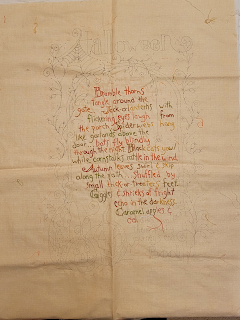 Bramble thorns
Tangle around the
gate. Jack-o-lanterns with
flickering eyes laugh from
the porch. Spiderwebs hang
like garlands above the
door. Bats fly blindly
through the night. Black cats yowl
while cornstalks rattle in the wind
Autumn leaves swirl & skip
along the path... shuffled by
small trick-or-treaters' feet.
Giggles & shrieks of fright
echo in the darkness.
Caramel apples &